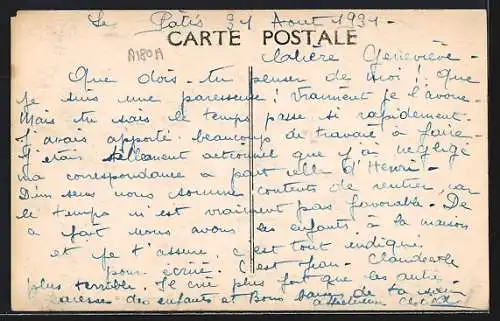 Les Patis 31 Aout 1931 -
CARTE POSTALE
A180A
Genevieve -
Que dois-tu penser de moi! Que
je suis une paresseuse! vraiment je l'avoue -
Mais tu sais le temps passe si rapidement.
J'avais apporté beaucoup de travail à faire -
J'etais tellement que j'ai négligé
ma correspondance à part celle d'Henri -
D'un sens nous sommes contents de rentrer, car
le temps n'est vraiment pas favorable. De
fait nous avons les enfants à la maison
et je t'assure, c'est tout indiqué
pour écrire. C'est Jean-Claude le
plus terrible. Je crie plus fort que les autres
caresses des enfants et Bons de ta soeur